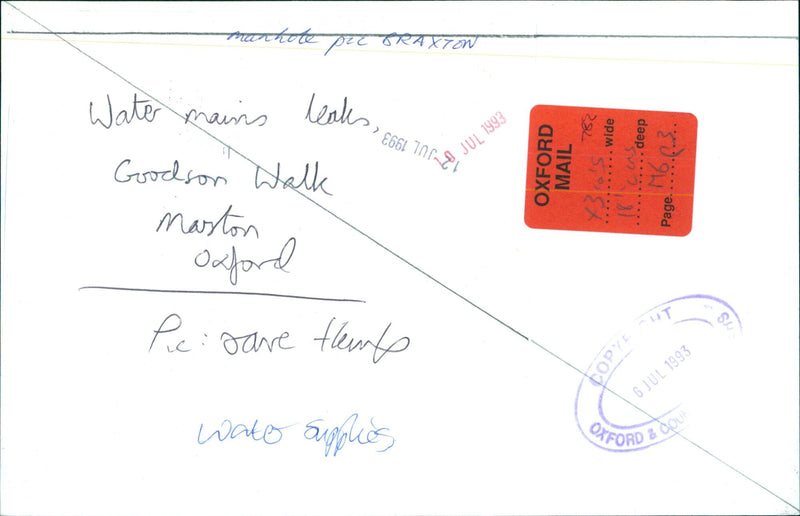 manhole pic BRAXTON
Water mains leaks,
Goodson Walk
Marston
Oxford
Pic: Dave
Water Supplies
12 JUL 1993
6 JUL 1993
OXFORD
MAIL
wide
deep
Page M6 p3
COPYRIGHT
6 JUL 1993
OXFORD & COU